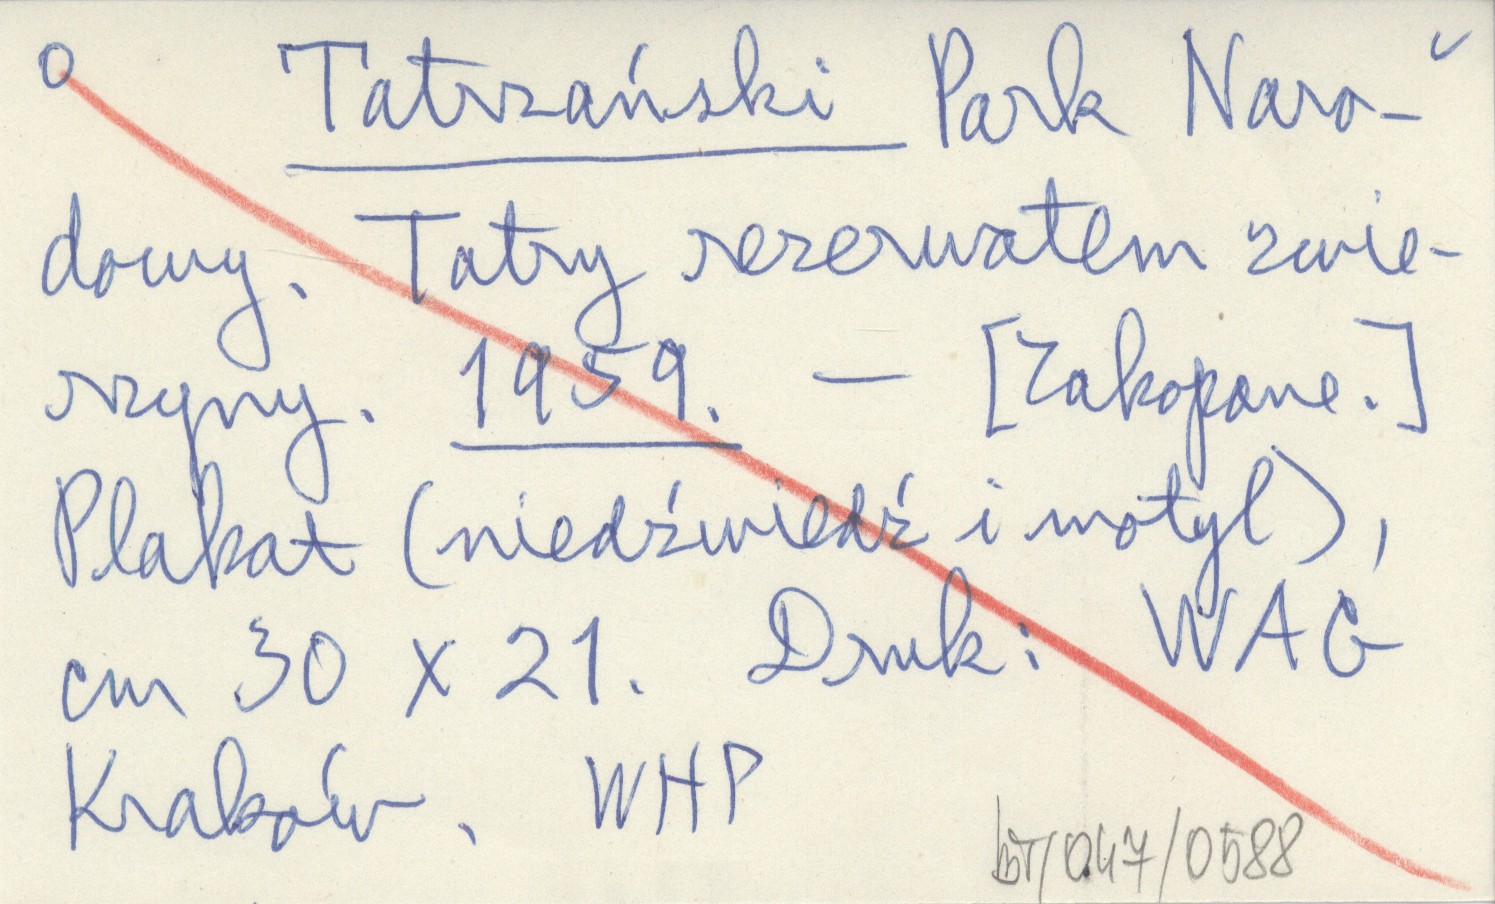 O Tatrzański Park Naro-
dowy. Tatry rezerwatem zwie-
rzyny. 1959. — [Zakopane.]
Plakat (niedźwiedź i motyl),
cm 30 x 21. Druk: WAG
Kraków. WHP
bT/047/0588